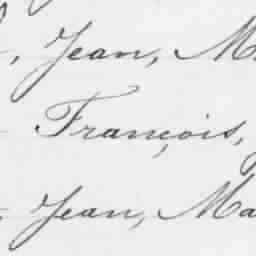 , Jean, Ma
François,
, Jean, Ma